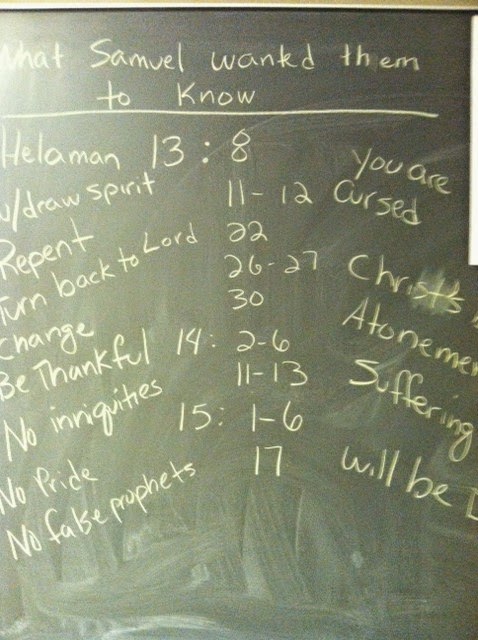 What Samuel wanted them
to Know
Helaman 13 : 8
w/draw spirit
Repent
Turn back to Lord
change
Be Thankful
No inriquities
No Pride
No false prophets
11-12
22
26-27
30
14: 2-6
11-13
15: 1-6
17
You are
Cursed
Christ's
Atonemen
Suffering
will be